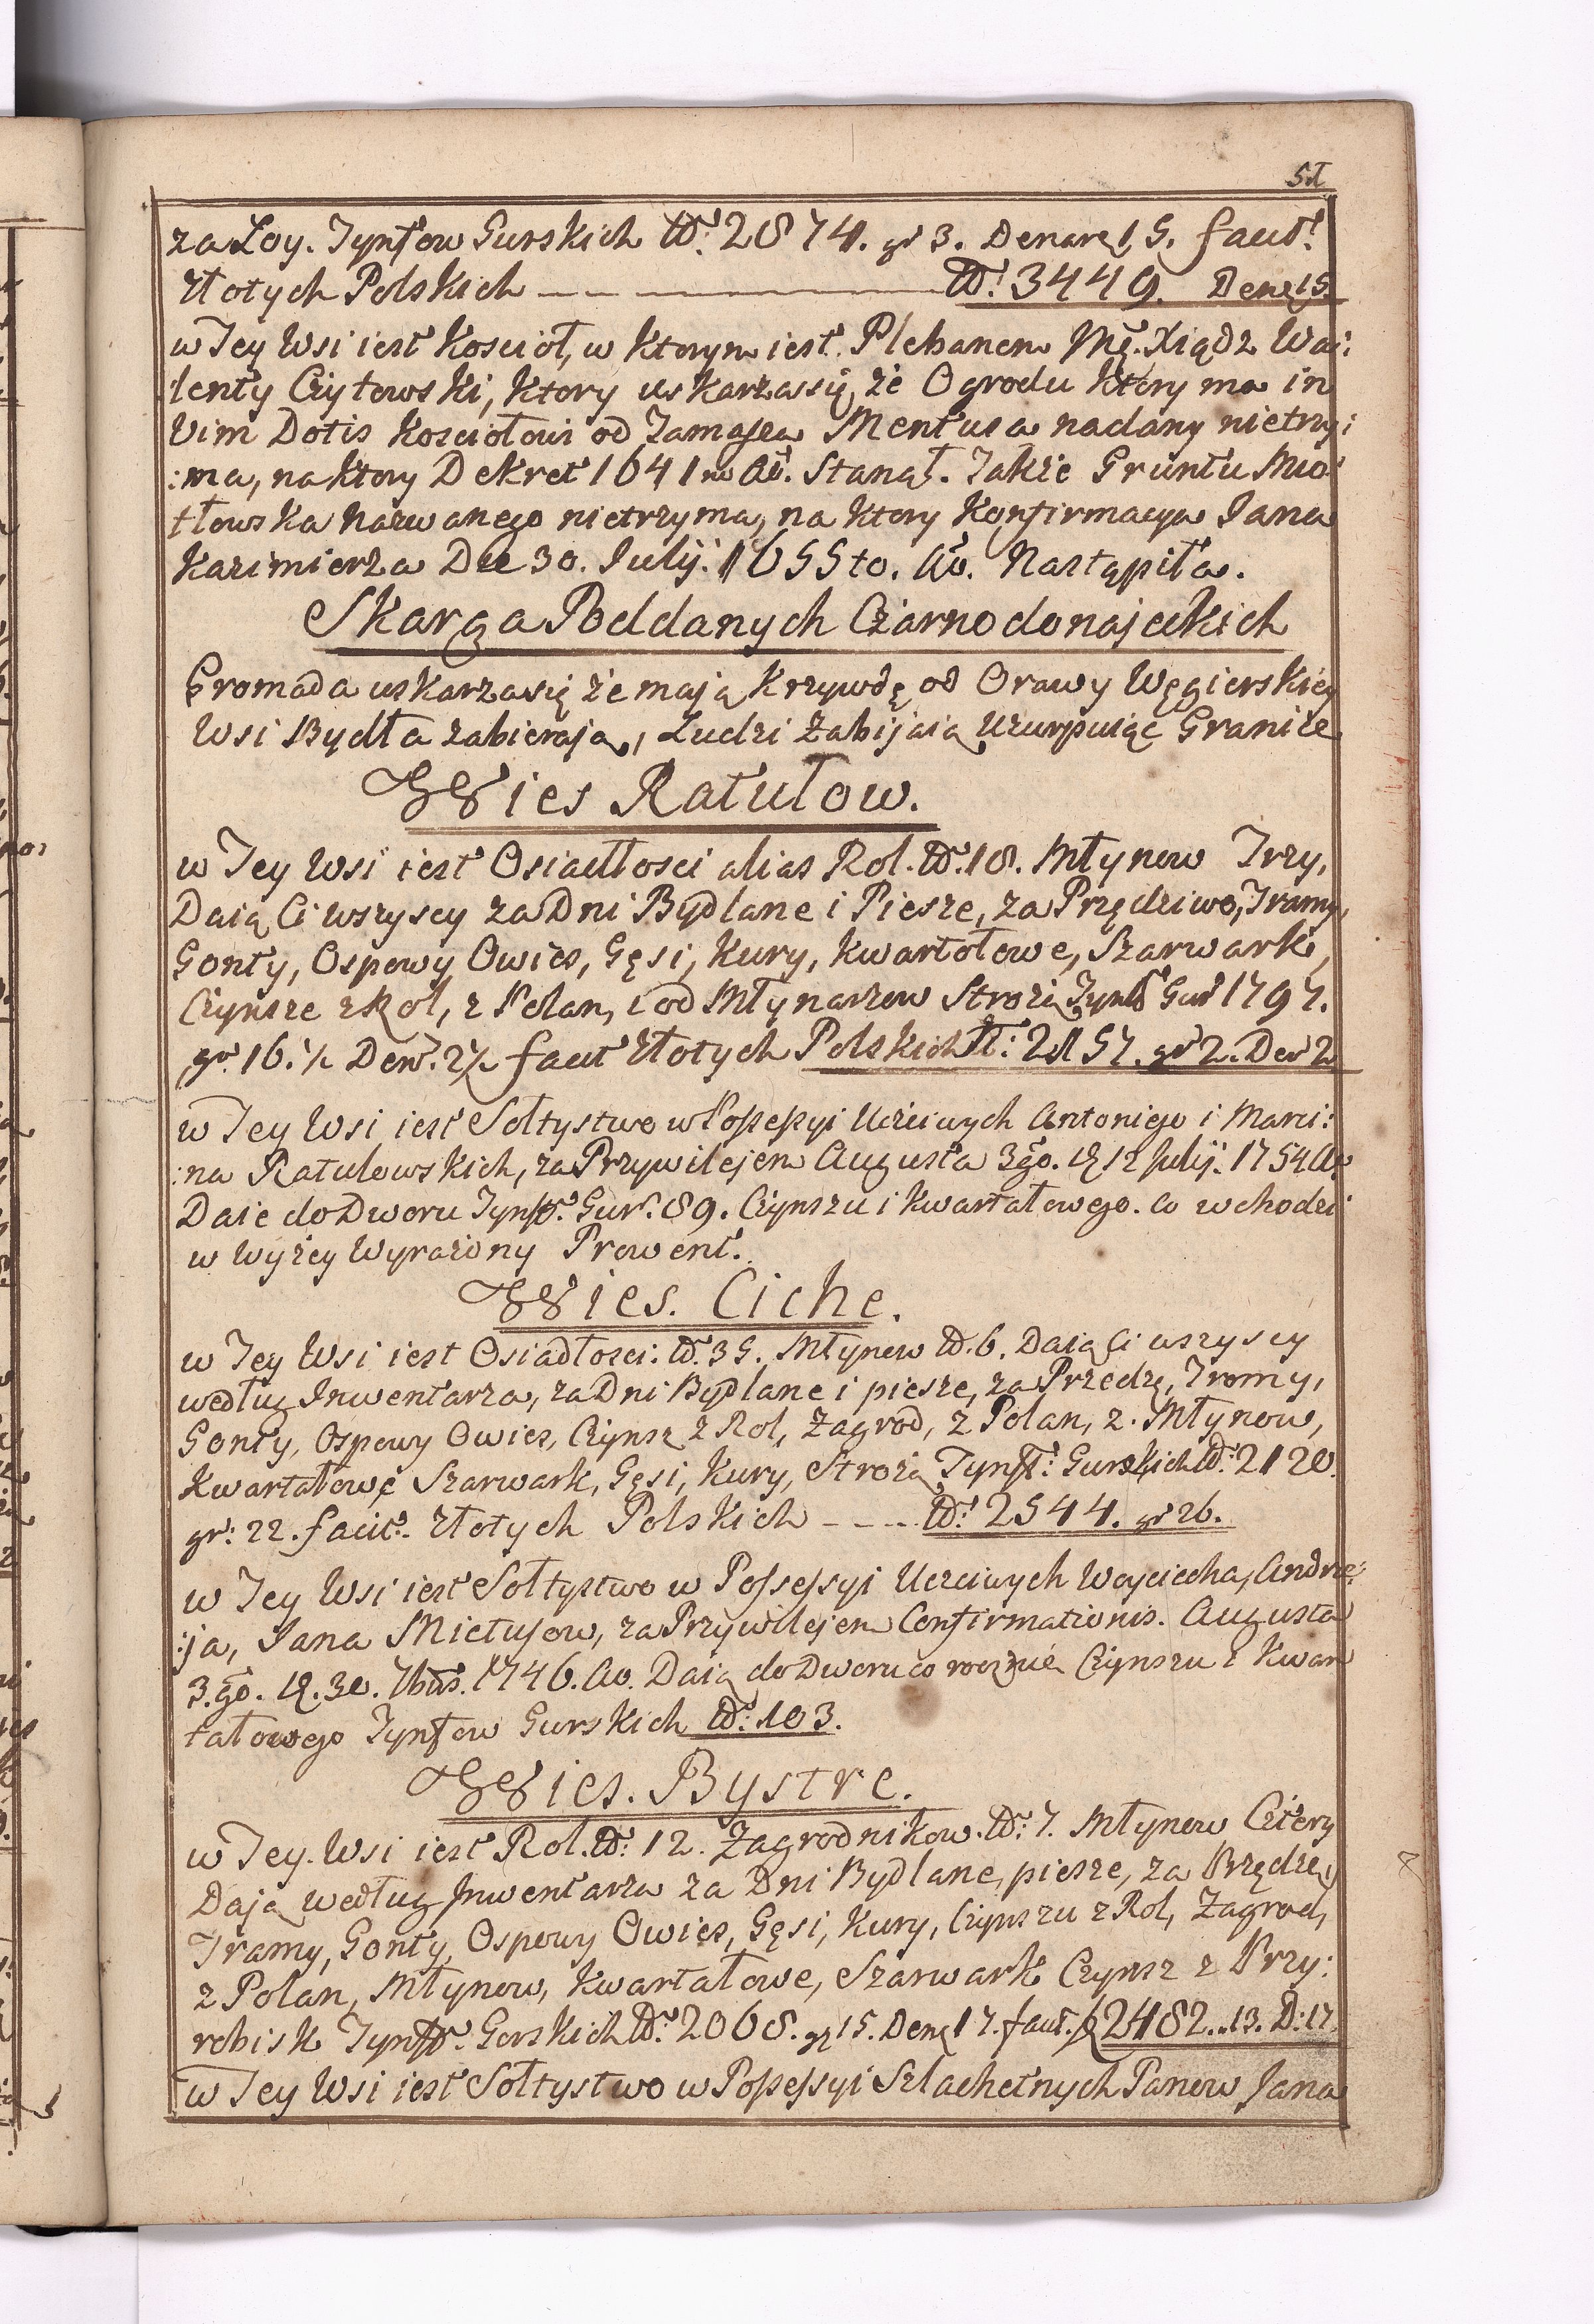 51
za Łoy. Tynfow Gurskich No: 2874. gr 3. Denarę 15. facit:
złotych Polskich No: 3449. Denę 15.
w Tey Wsi iest Koscioł, w ktorym iest Plebanem Xiądz Wa:
:lenty Czytowski, ktory uskarza się, że Ogrodu ktory ma in
Vim Dotis Kosciołowi od Tamasza Mentusa nadany nietrzy:
:ma, na ktory Dekret 1641 Ao. Stanął. Także Gruntu Mio
tłowska nazwanego nietrzyma, na ktory Konfirmacya Iana
Kazimierza Die 30. Iulij. 1655to. Ao. Nastąpiła.
Skarga Poddanych Czarnodonajeckich
Gromada uskarza się że mają Krzywdę od Orawy Węgierskiey
Wsi Bydła zabierają, Ludzi Zabijaią Uzurpuiąc Granice
Wies Ratułow.
w Tey Wsi iest Osiadłosci alias Rol. No. 18. Młynow Trzy,
Daią Ci wszyscy za Dni Bydlane i Piesze, za Przędziwo, Tramy,
Gonty, Ospowy Owies, Gęsi, Kury, Kwartołowe, Szarwark,
Czynsze z Rol, z Polan, i od Młynarzow Stroża Tynf Gur 1797.
gr. 16. ½ Den. 2½ facit złotych Polskich No: 2157. gr 2. Den 2
w Tey Wsi iest Sołtystwo w Possessyi Uczciwych Antoniego i Marci:
:na Ratulowskich, za Przywilejem Augusta 3go. D 12 Julij. 1754 Ao
Daie do Dworu Tynf. Gur. 89. Czynszu i Kwartałowego. Co wchodzi
w Wyżey Wyrażony Prowent.
Wies. Ciche.
w Tey Wsi iest Osiadłosci: No. 35. Młynow No. 6. Daią Ci wszyscy
według Inwentarza, za Dni Bydlane i piesze, za Przedzę, Tromy,
Gonty, Ospowy Owies, Czynsz z Rol, Zagrod, z Polan, z. Młynow,
Kwartałowe Szarwark, Gęsi, Kury, Stroża Tynf: Gurskich No: 2120.
gr: 22. facit. złotych Polskich No: 2544. gr 26.
w Tey Wsi iest Sołtystwo w Possessyi Uczciwych Woyciecha, Andrze:
:ja, Iana Mietusow, za Przywilejem Confirmationis. Augusta
3.go. D. 30. 7bris. 1746. Ao. Daią do Dworu co rocznie Czynszu i Kwar
tałowego Tynfow Gurskich No: 103.
Wies. Bystre.
w Tey. Wsi iest Rol. No: 12. Zagrodnikow. No: 7. Młynow Cztery
Dają według Inwentarza za Dni Bydlane, piesze, za Przędzę,
Tramy, Gonty, Ospowy Owies, Gęsi, Kury, Czynszu z Rol, Zagrod,
z Polan, Młynow, Kwartałowe, Szarwark Czynsz z Przy:
robisk Tynf. Gorskich No: 2068. gr 15. Denę 17. facit. 2482. 13. D: 17.
w Tey Wsi iest Sołtystwo w Possessyi Szlachetnych Panow Jana